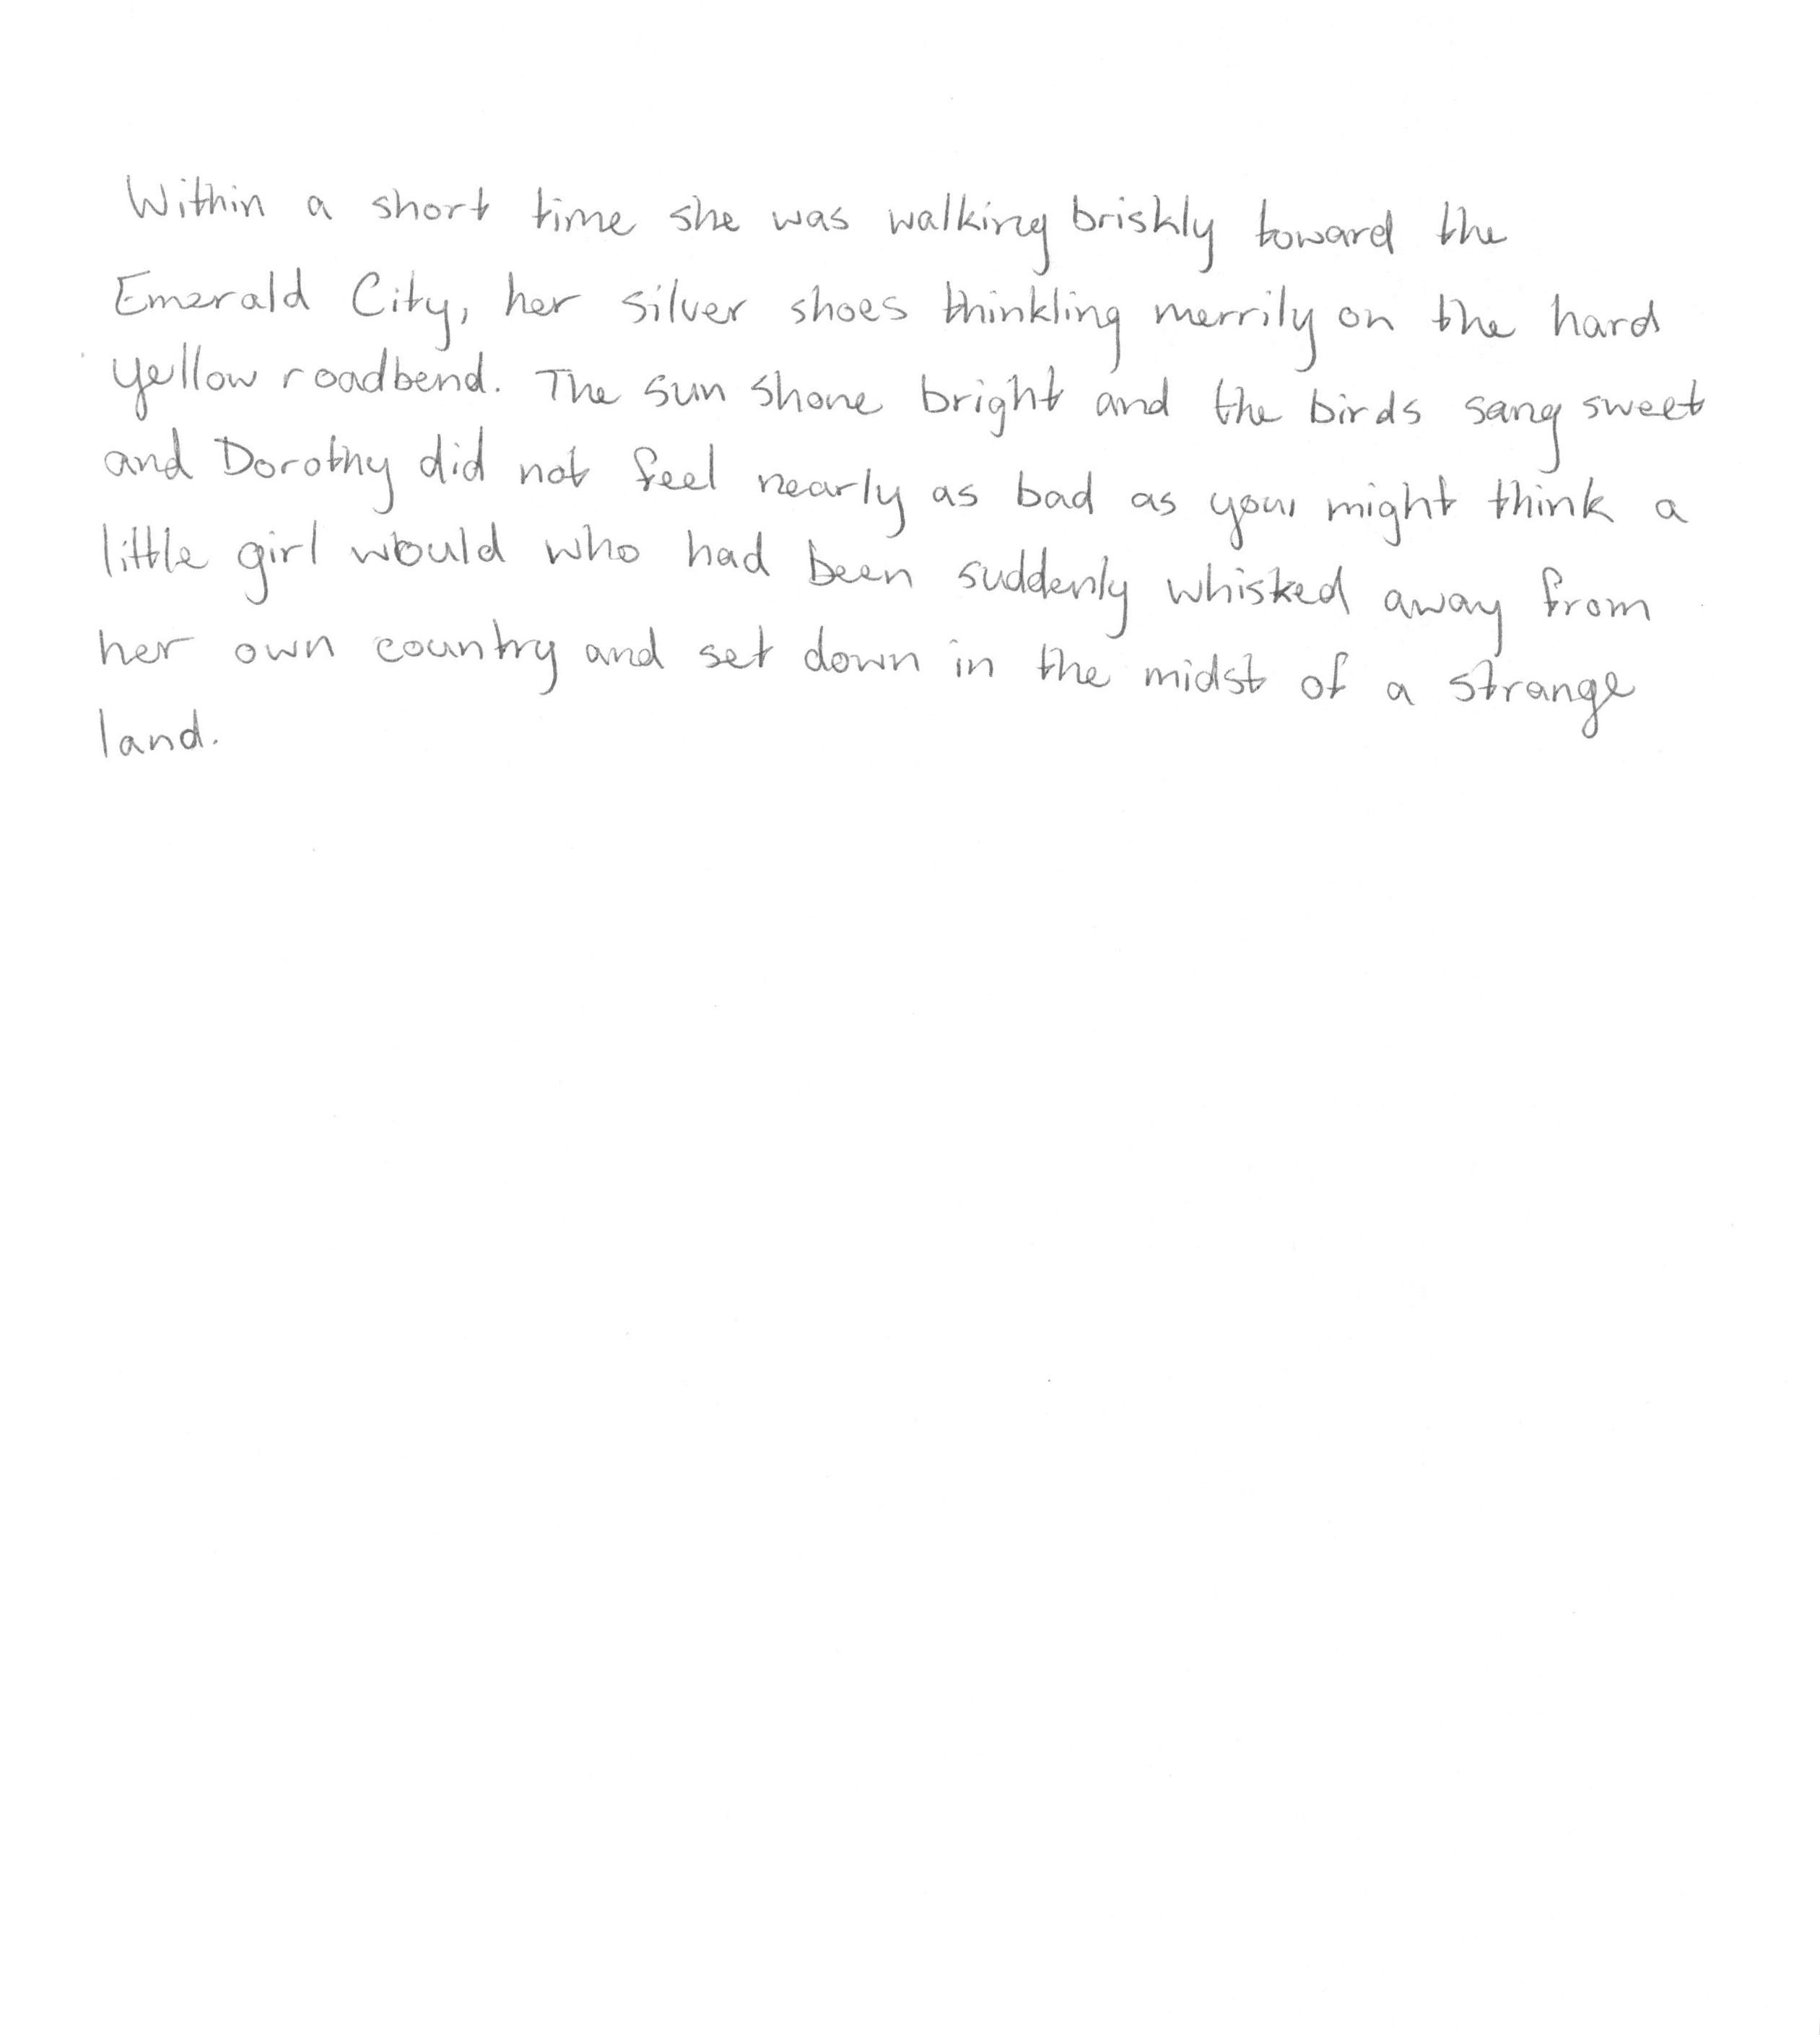 Within a short time she was walking briskly toward the
Emerald City, her silver shoes thinkling merrily on the hard
yellow roadbend. The sun shone bright and the birds sang sweet
and Dorothy did not feel nearly as bad as you might think a
little girl would who had been suddenly whisked away from
her own country and set down in the midst of a strange
land.